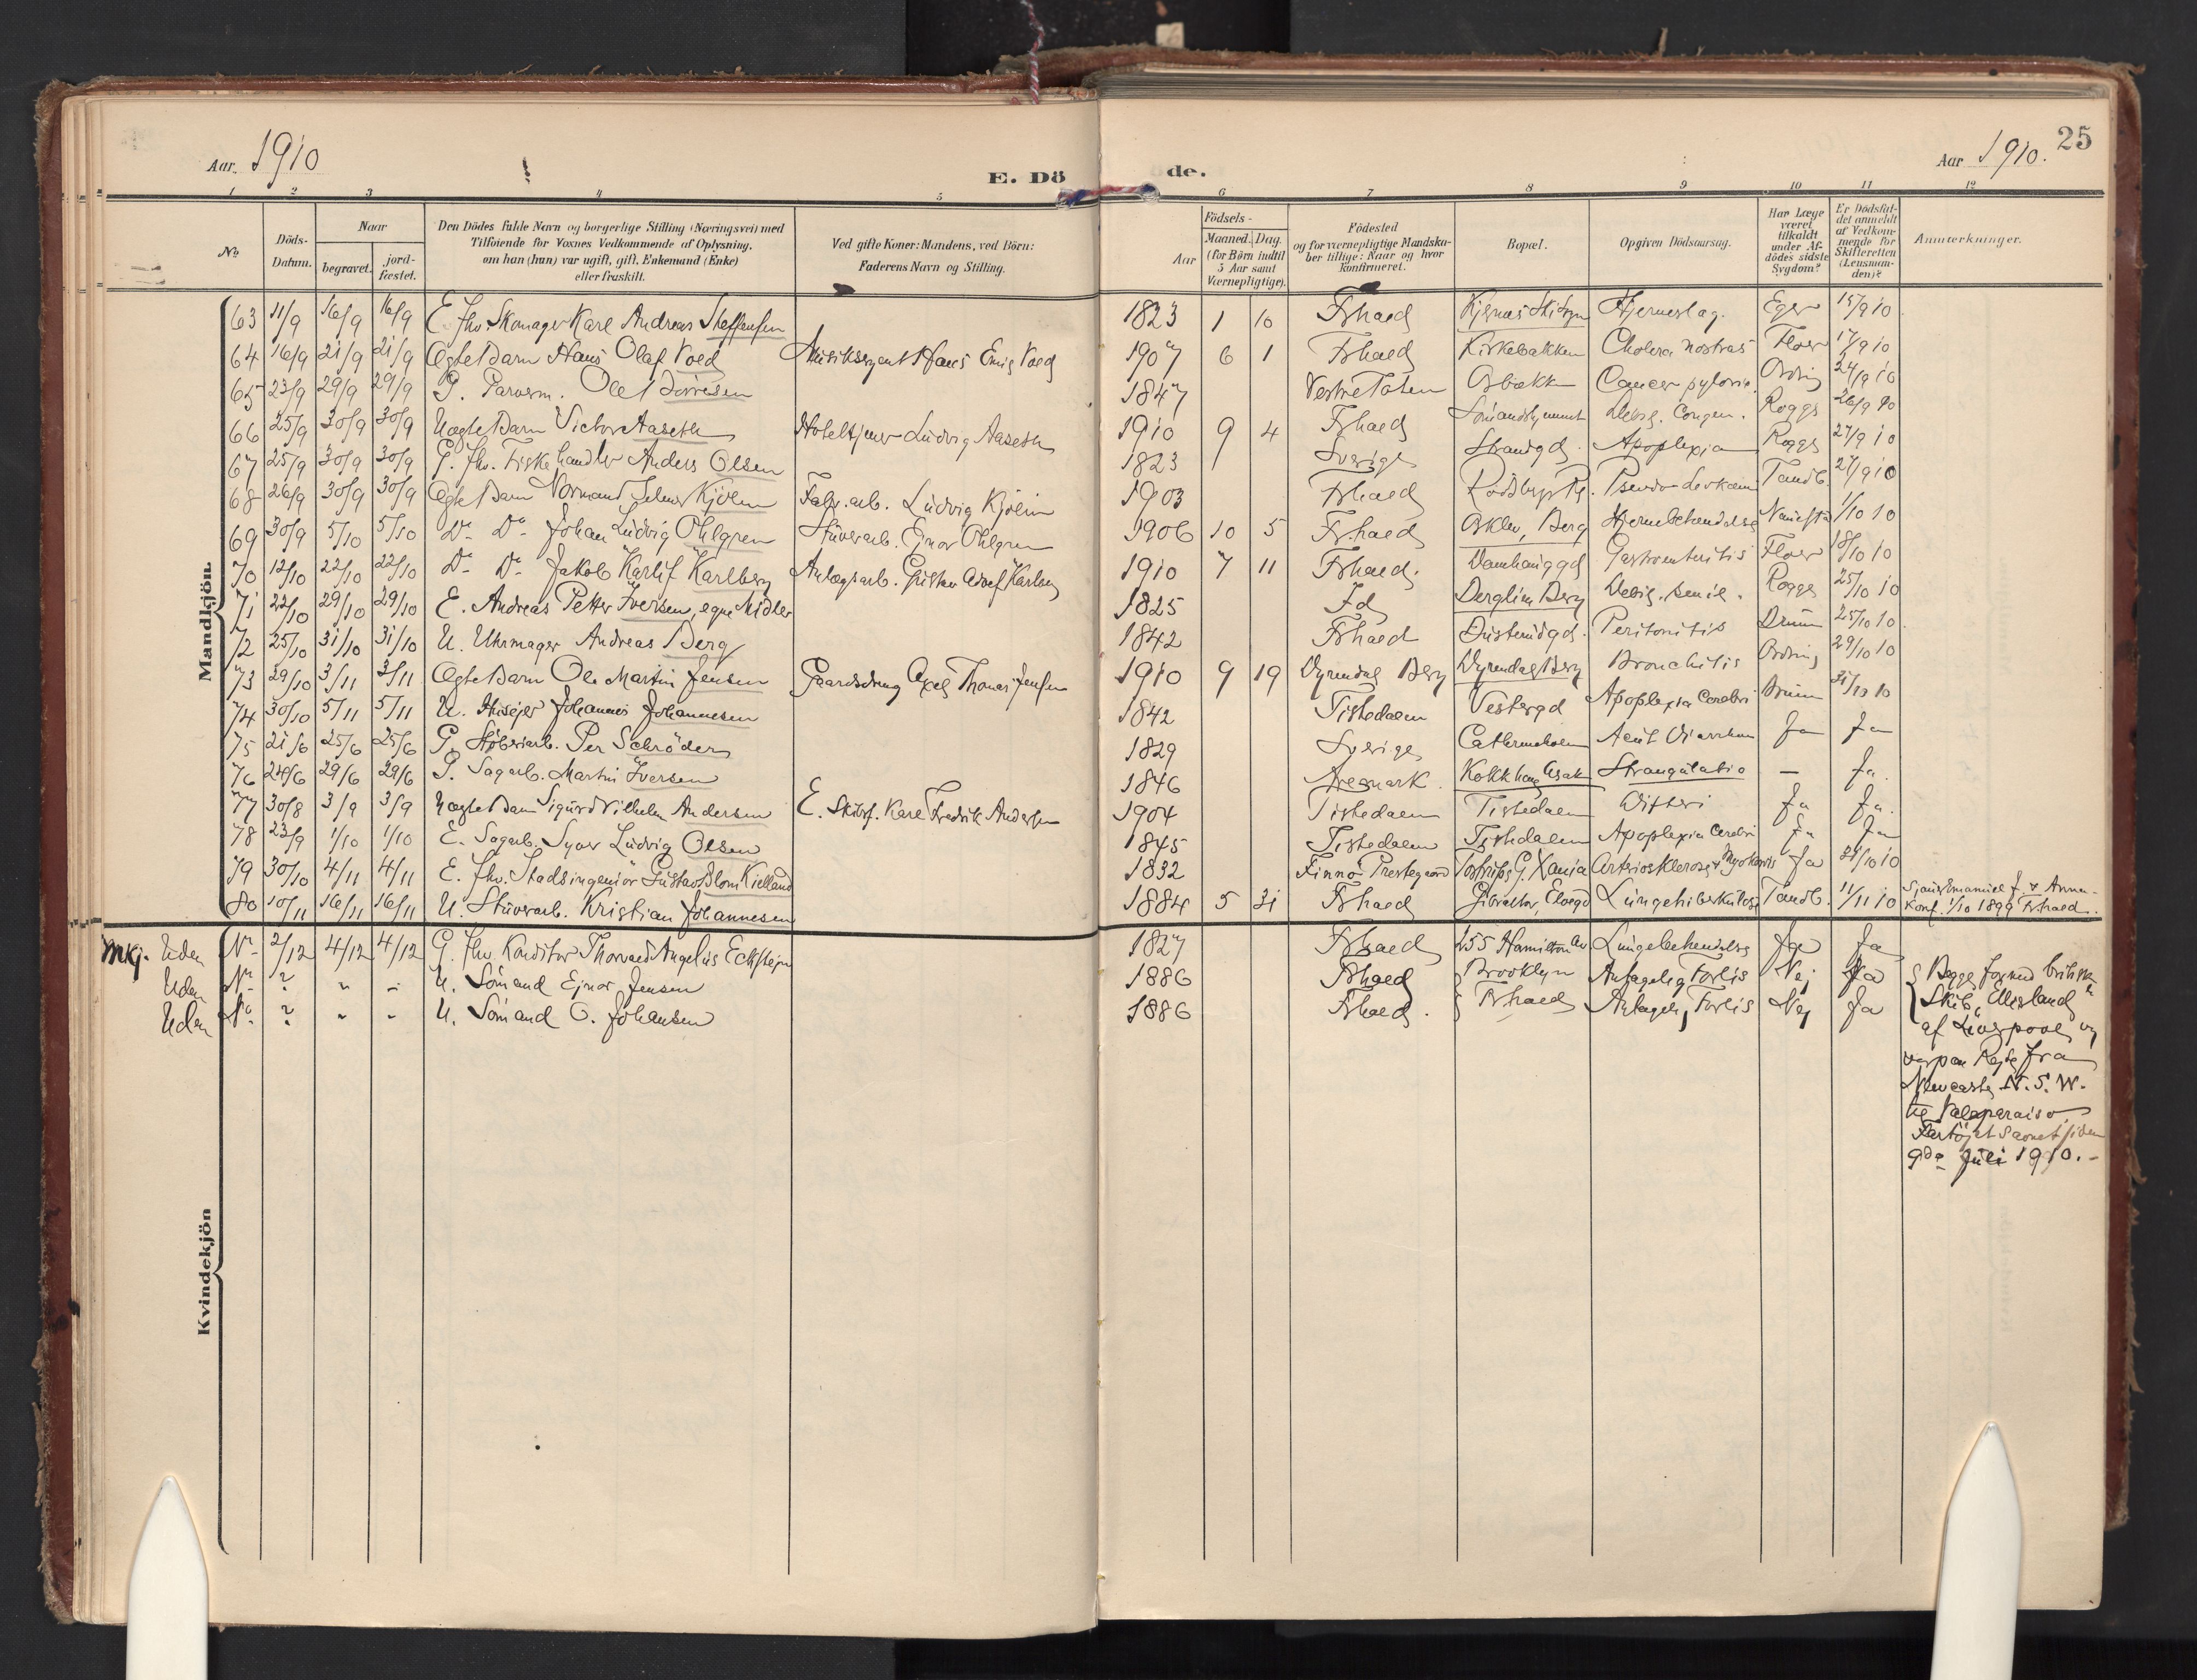 Aar. 1910
E. Dö
de.
Aar 1910.
25
1 2 3 4 5 6 7 8 9 10 11 12
No
Döds-Datum.
Naar
begravet.
jord-fæstet.
Den Dödes fulde Navn og borgerlige Stilling (Næringsvei) med
Tilföiende for Voxnes Vedkommende af Oplysning,
om han (hun) var ugift, gift, Enkemand (Enke)
eller fraskilt.
Ved gifte Koner: Mandens, ved Börn:
Faderens Navn og Stilling.
Aar
Födsels-
Maaned. Dag.
(for Börn indtil
5 Aar samt
Værnepligtige).
Födested
og for værnepligtige Mandska-
ber tillige: Naar og hvor
konfirmeret.
Bopæl.
Opgiven Dödsaarsag.
Har Læge
været
tilkaldt
under Af-
dödes sidste
Sygdom?
Er Dödsfal-
det anmeldt
af Vedkom-
mende for
Skifteretten
(Lensman-
den)?
Anmerkninger.
Mandkjön.
63 11/9 16/9 16/9 E. fhv. Skomager Karl Andreas Steffensen 1823 1 10 Frhald Hjerneslag. 15/9 10
64 16/9 21/9 21/9 Ægte Barn Hans Olaf Vold Musiksergent Hans Emil Vold 1907 6 1 Frhald Kirkebakken Cholera nostras 17/9 10
65 23/9 29/9 29/9 G. Ole 1847 Vestre Toten Cancer pylori 24/9 10
66 25/9 30/9 30/9 Uægte Barn Victor Aaseth Hoteltjener Ludvig Aaseth 1910 9 4 Frhald Debil. congen. Roggs 26/9 10
67 25/9 30/9 30/9 G. fhv. Fiskehandler Anders Olsen 1823 Sverige Strandgd. Apoplexia Roggs 27/9 10
68 26/9 30/9 30/9 Ægte Barn Normand Kjölen Fabr. arb. Ludvig Kjölen 1903 Frhald Tandb. 27/9 10
69 30/9 5/10 5/10 Do Do Johan Ludvig Ohlgren Stuverarb. Ejnar Ohlgren 1906 10 5 Frhald Berg Hjernebetændelse 1/10 10
70 12/10 22/10 22/10 Do Do Jakob Karlberg Anlægsarb. Gustav Adolf Karlberg 1910 7 11 Frhald. Damhauggd Gastroenteritis 18/10 10
71 22/10 29/10 29/10 E. Andreas Petter Iversen, egne Midler 1825 Id Berg Debil. senil. Roggs 25/10 10
72 25/10 31/10 31/10 U. Uhrmager Andreas Berg 1842 Frhald Peritonitis 25/10 10
73 29/10 3/11 3/11 Ægte Barn Ole Martin Jensen Gaardsdreng Axel Thomas Jensen 1910 9 19 Dyrendal Berg Dyrendal Berg Bronchitis 29/10 10
74 30/10 5/11 5/11 U. Huseier Johannes Johannesen 1842 Tistedalen Vestergd Apoplexia Cerebri 31/10 10
75 21/6 25/6 25/6 G. Støberiarb. Per Schröder 1829 Sverige Acut Diarrhea Ja Ja
76 24/6 29/6 29/6 G. Sagarb. Martin Iversen 1846 Aremark. Strangulatio — Ja.
77 30/8 3/9 3/9 Uægte Barn Sigurd Vilhelm Andersen E. Karl Fredrik Andersen 1904 Tistedalen Tistedalen Difteri Ja Ja.
78 23/9 1/10 1/10 E. Sagarb. Syver Ludvig Olsen 1845 Tistedalen Tistedalen Apoplexia Cerebri Ja Ja
79 30/10 4/11 4/11 E. fhv. Stadsingeniör Gustav Blom Kielland 1832 Finnö Prestegaard Arteriosklerose + Myokardis Ja 31/10 10
80 10/11 16/11 16/11 U. Stuverarb. Kristian Johannesen 1884 5 31 Frhald Gibraltar, Lungetuberkulose Tandb. 11/11 10 Sjauer Emanuel J. + Anna. Konf. 1/10 1899 Frhald.
Mkj. Uden No 2/12 4/12 4/12 G. fhv. Konditor Thorvald Angelus Eckstejn 1827 Frhald 255 Hamilton Av Lungebetændelse Ja Ja
Uden No ? " – U. Sömand Ejnar Jensen 1886 Frhald Brooklyn Antagelig Forlis Nej Ja
Uden No ? " – U. Sömand O. Johansen 1886 Frhald. Frhald Antagelig Forlis Nej Ja
Begge formed britisk
Skib "Ellisland"
af Liverpool og
var paa Rejse fra
Newcastle N. S. W.
til Valparaiso.
Fartöjet savnet siden
9de Juli 1910.–
Kvindekjön